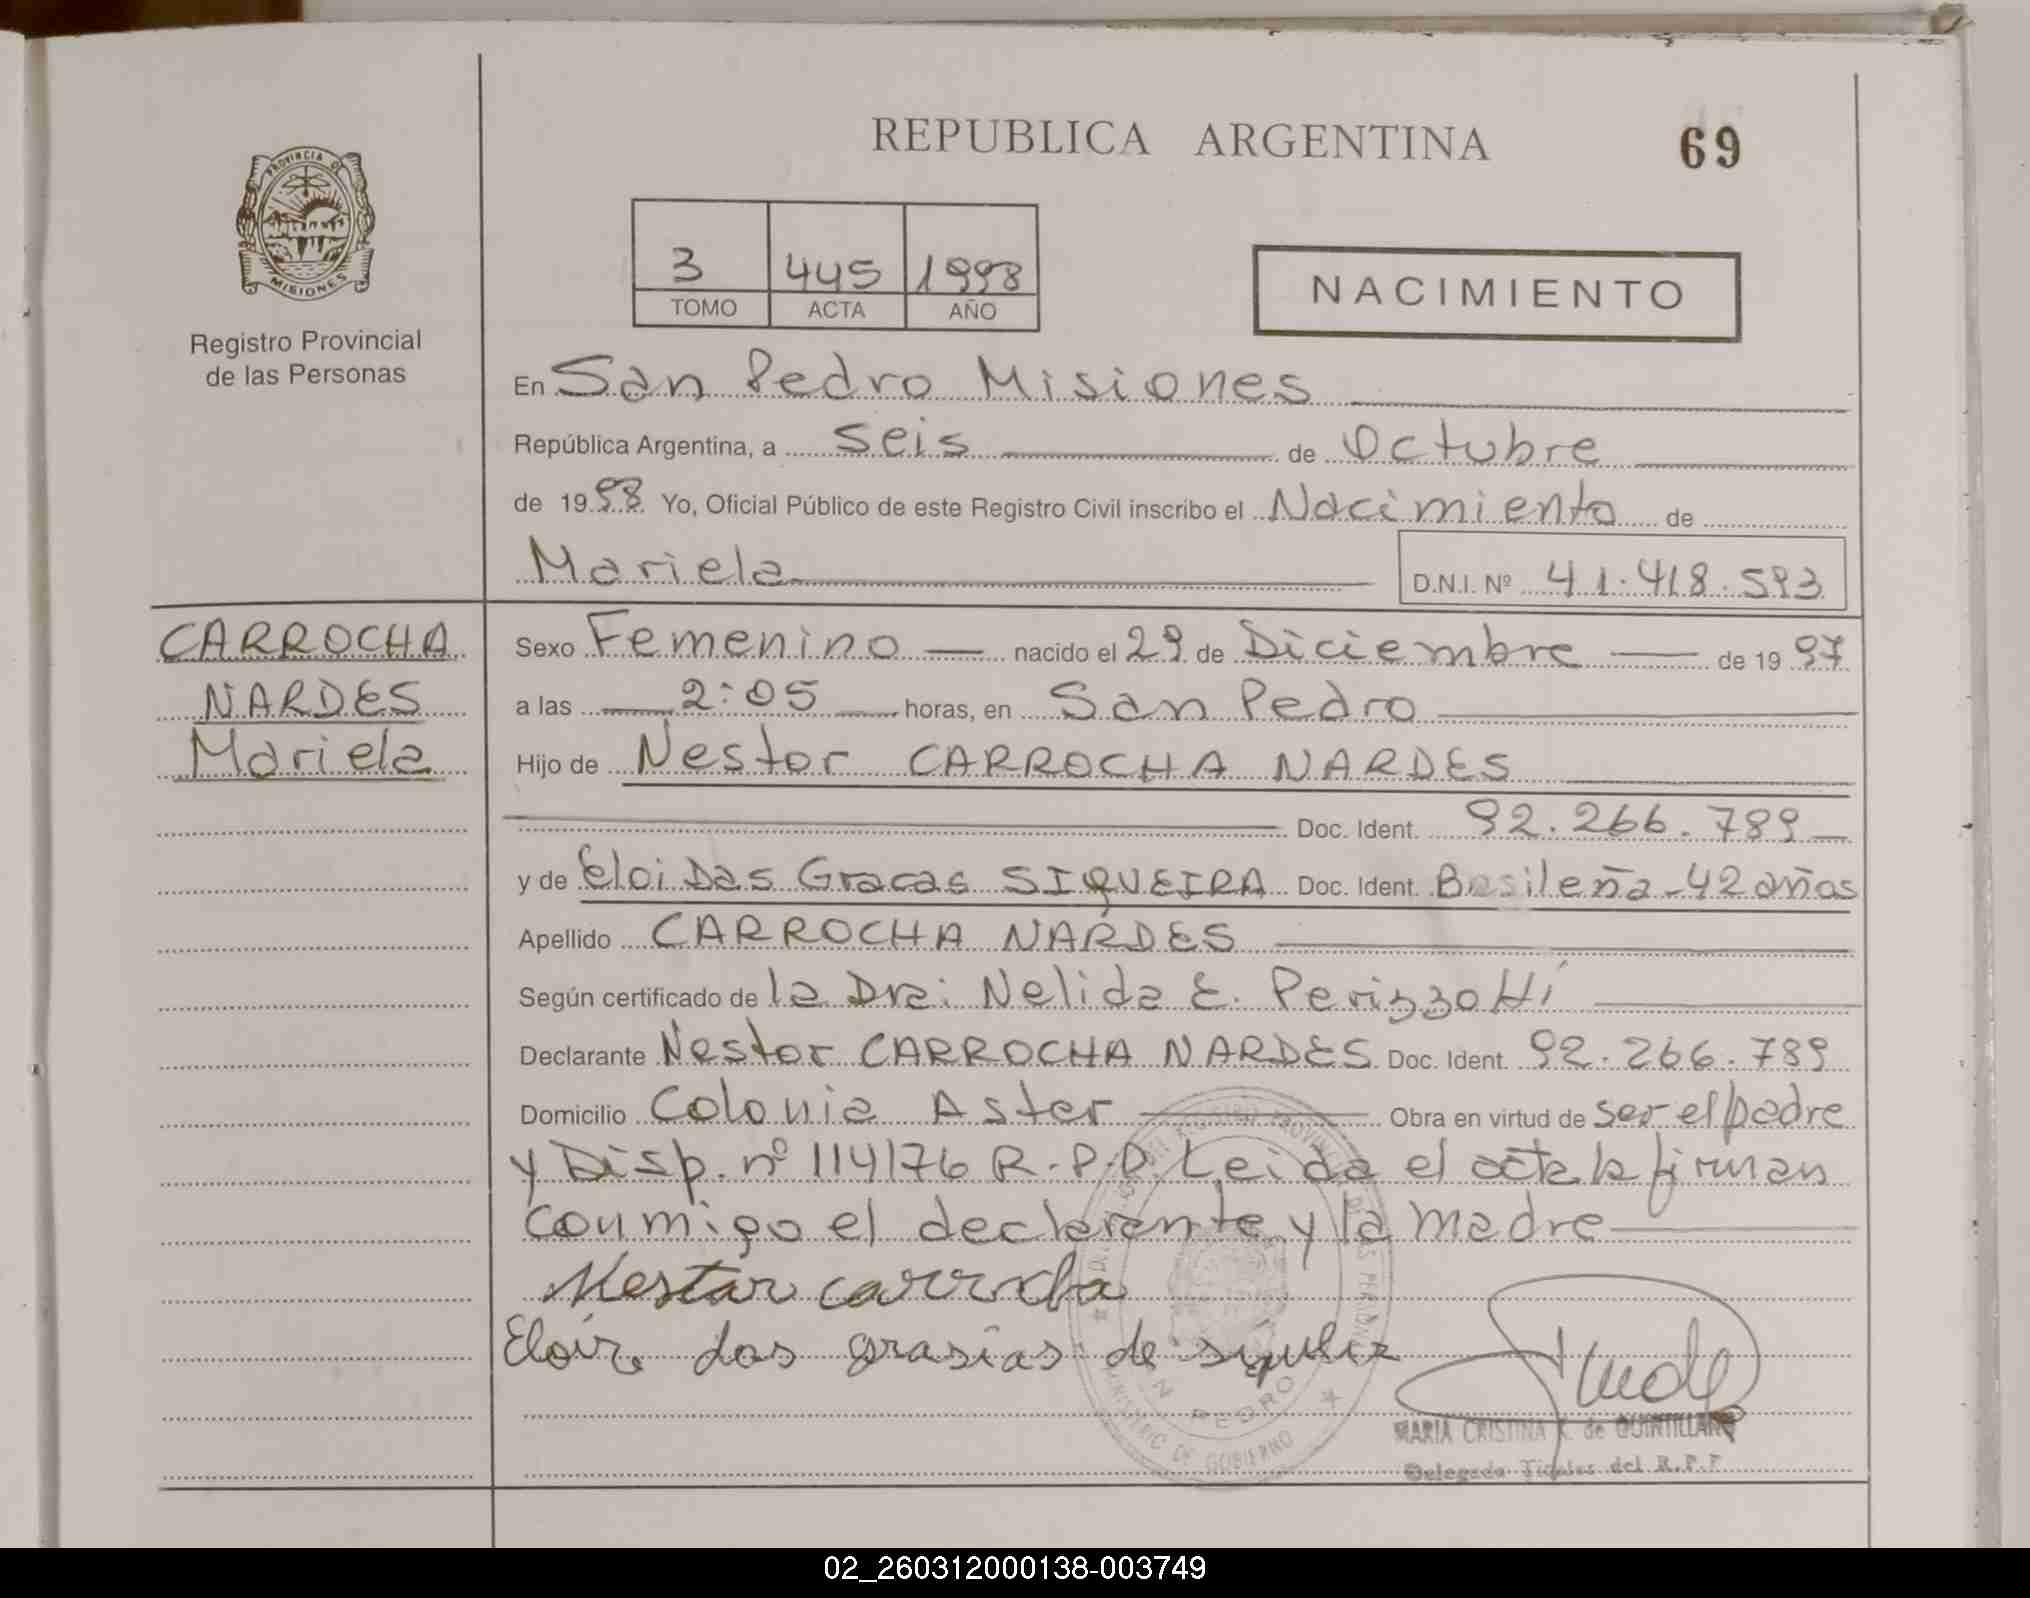 REPUBLICA ARGENTINA
69
PROVINCIA DE
MISIONES
Registro Provincial
de las Personas
3 445 1998
TOMO ACTA AÑO
NACIMIENTO
En San Pedro Misiones
República Argentina, a seis de Octubre
de 1998 Yo, Oficial Público de este Registro Civil inscribo el Nacimiento de
Mariela D.N.I. Nº 41.418.593
CARROCHA
NARDES
Mariela
Sexo Femenino nacido el 29 de Diciembre de 1997
a las 2:05 horas, en San Pedro
Hijo de Nestor CARROCHA NARDES
Doc. Ident. 92.266.789
y de Eloi Das Gracas SIQUEIRA Doc. Ident. Brasileña - 42 años
Apellido CARROCHA NARDES
Según certificado de la Dra: Nelida E. Perizzotti
Declarante Nestor CARROCHA NARDES Doc. Ident. 92.266.789
Domicilio Colonia Aster Obra en virtud de ser el padre
y Disp. nº 114/76 R.P.P. Leida el acta la firman
conmigo el declarante y la madre
Nestar carrocha
Eloir das grasias de
SAN PEDRO
MINISTERIO DE GOBIERNO
MARIA CRISTINA K. de QUINTILLAN
Delegada Titular del R.P.P
02_260312000138-003749